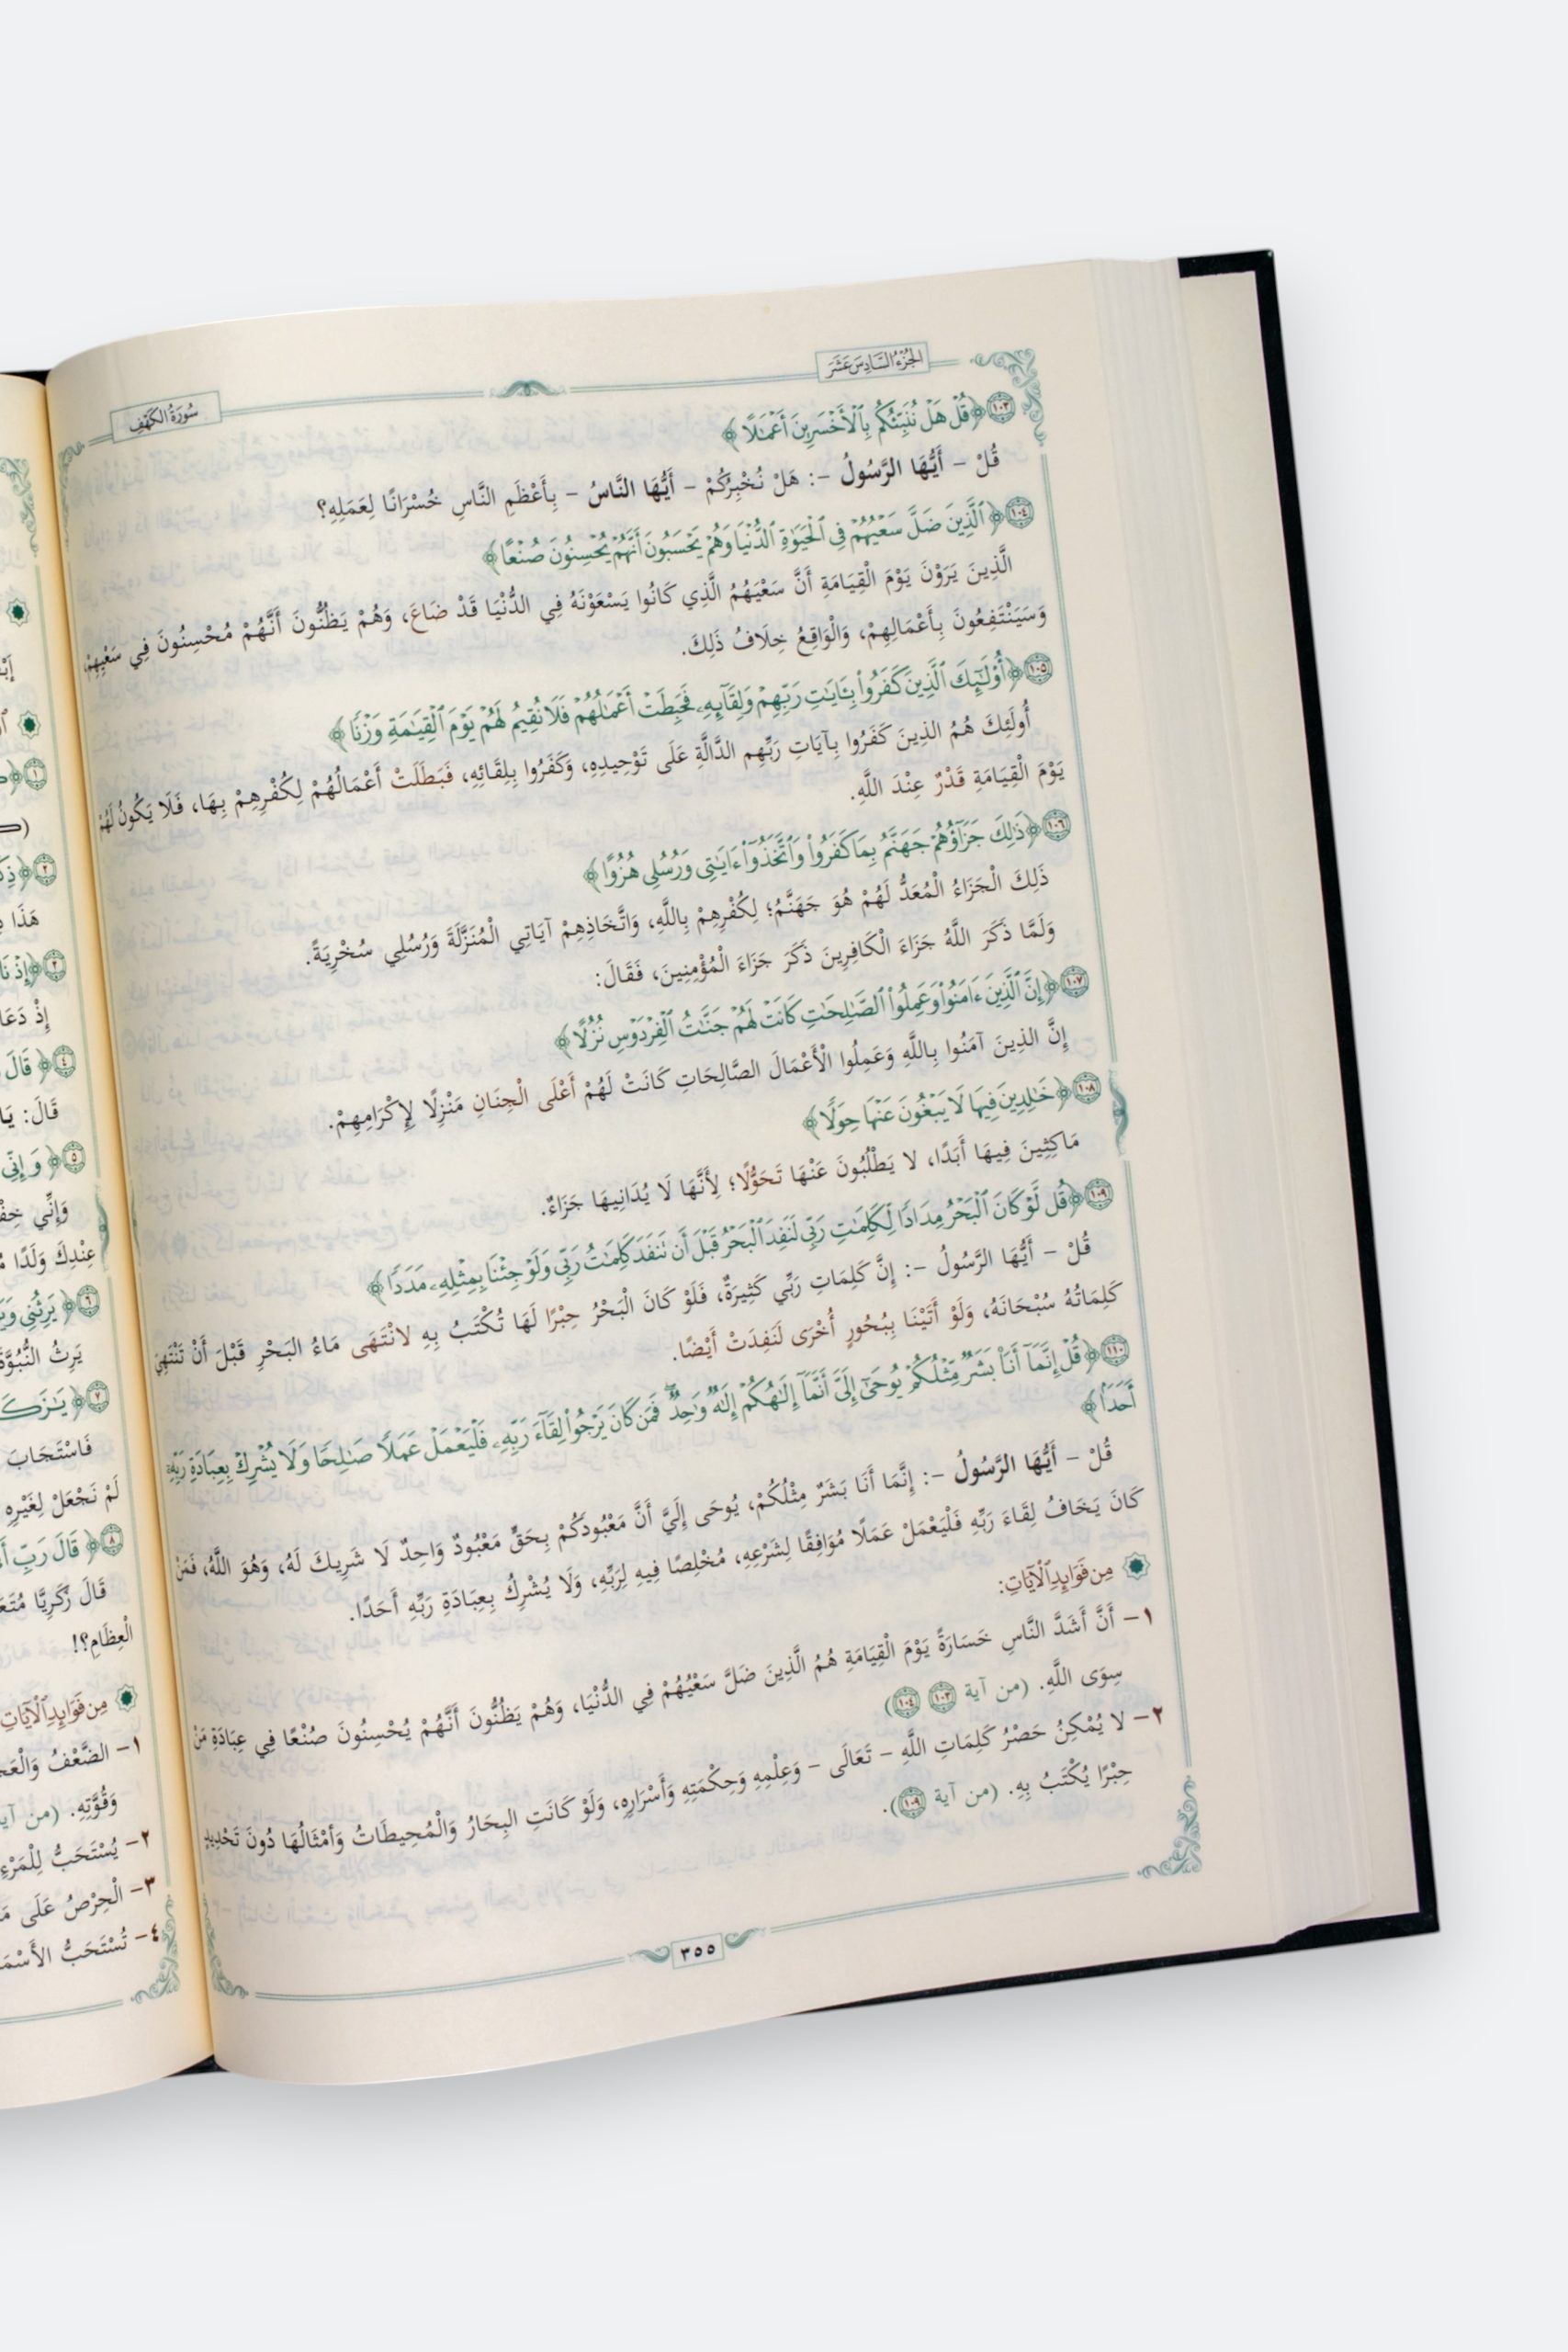 الجُزْءُ السَّادِسَ عَشَرَ
سُورَةُ الكَهْفِ
١٠٣ ﴿قُلۡ هَلۡ نُنَبِّئُكُم بِٱلۡأَخۡسَرِينَ أَعۡمَٰلًا﴾
قُلْ – أَيُّهَا الرَّسُولُ –: هَلْ نُخْبِرُكُمْ – أَيُّهَا النَّاسُ – بِأَعْظَمِ النَّاسِ خُسْرَانًا لِعَمَلِهِ؟
١٠٤ ﴿ٱلَّذِينَ ضَلَّ سَعۡيُهُمۡ فِي ٱلۡحَيَوٰةِ ٱلدُّنۡيَا وَهُمۡ يَحۡسَبُونَ أَنَّهُمۡ يُحۡسِنُونَ صُنۡعًا﴾
الَّذِينَ يَرَوْنَ يَوْمَ الْقِيَامَةِ أَنَّ سَعْيَهُمُ الَّذِي كَانُوا يَسْعَوْنَهُ فِي الدُّنْيَا قَدْ ضَاعَ، وَهُمْ يَظُنُّونَ أَنَّهُمْ مُحْسِنُونَ فِي سَعْيِهِمْ،
وَسَيَنْتَفِعُونَ بِأَعْمَالِهِمْ، وَالْوَاقِعُ خِلَافُ ذَلِكَ.
١٠٥ ﴿أُوْلَٰٓئِكَ ٱلَّذِينَ كَفَرُواْ بِـَٔايَٰتِ رَبِّهِمۡ وَلِقَآئِهِۦ فَحَبِطَتۡ أَعۡمَٰلُهُمۡ فَلَا نُقِيمُ لَهُمۡ يَوۡمَ ٱلۡقِيَٰمَةِ وَزۡنًا﴾
أُولَئِكَ هُمُ الذِينَ كَفَرُوا بِآيَاتِ رَبِّهِم الدَّالَّةِ عَلَى تَوْحِيدِهِ، وَكَفَرُوا بِلِقَائِهِ، فَبَطَلَتْ أَعْمَالُهُمْ لِكُفْرِهِمْ بِهَا، فَلَا يَكُونُ لَهُمْ
يَوْمَ الْقِيَامَةِ قَدْرٌ عِنْدَ اللَّهِ.
١٠٦ ﴿ذَٰلِكَ جَزَآؤُهُمۡ جَهَنَّمُ بِمَا كَفَرُواْ وَٱتَّخَذُوٓاْ ءَايَٰتِي وَرُسُلِي هُزُوًا﴾
ذَلِكَ الْجَزَاءُ الْمُعَدُّ لَهُمْ هُوَ جَهَنَّمُ؛ لِكُفْرِهِمْ بِاللَّهِ، وَاتَّخَاذِهِمْ آيَاتِي الْمُنَزَّلَةَ وَرُسُلِي سُخْرِيَةً.
وَلَمَّا ذَكَرَ اللَّهُ جَزَاءَ الْكَافِرِينَ ذَكَرَ جَزَاءَ الْمُؤْمِنِينَ، فَقَالَ:
١٠٧ ﴿إِنَّ ٱلَّذِينَ ءَامَنُواْ وَعَمِلُواْ ٱلصَّٰلِحَٰتِ كَانَتۡ لَهُمۡ جَنَّٰتُ ٱلۡفِرۡدَوۡسِ نُزُلًا﴾
إِنَّ الذِينَ آمَنُوا بِاللَّهِ وَعَمِلُوا الْأَعْمَالَ الصَّالِحَاتِ كَانَتْ لَهُمْ أَعْلَى الْجِنَانِ مَنْزِلًا لِإِكْرَامِهِمْ.
١٠٨ ﴿خَٰلِدِينَ فِيهَا لَا يَبۡغُونَ عَنۡهَا حِوَلًا﴾
مَاكِثِينَ فِيهَا أَبَدًا، لا يَطْلُبُونَ عَنْهَا تَحَوُّلًا؛ لِأَنَّهَا لَا يُدَانِيهَا جَزَاءٌ.
١٠٩ ﴿قُل لَّوۡ كَانَ ٱلۡبَحۡرُ مِدَادًا لِّكَلِمَٰتِ رَبِّي لَنَفِدَ ٱلۡبَحۡرُ قَبۡلَ أَن تَنفَدَ كَلِمَٰتُ رَبِّي وَلَوۡ جِئۡنَا بِمِثۡلِهِۦ مَدَدًا﴾
قُلْ – أَيُّهَا الرَّسُولُ –: إِنَّ كَلِمَاتِ رَبِّي كَثِيرَةٌ، فَلَوْ كَانَ الْبَحْرُ حِبْرًا لَهَا تُكْتَبُ بِهِ لانْتَهَى مَاءُ البَحْرِ قَبْلَ أَنْ تَنْتَهِيَ
كَلِمَاتُهُ سُبْحَانَهُ، وَلَوْ أَتَيْنَا بِبُحُورٍ أُخْرَى لَنَفِدَتْ أَيْضًا.
١١٠ ﴿قُلۡ إِنَّمَآ أَنَا۠ بَشَرٌ مِّثۡلُكُمۡ يُوحَىٰٓ إِلَيَّ أَنَّمَآ إِلَٰهُكُمۡ إِلَٰهٌ وَٰحِدٌ فَمَن كَانَ يَرۡجُواْ لِقَآءَ رَبِّهِۦ فَلۡيَعۡمَلۡ عَمَلًا صَٰلِحًا وَلَا يُشۡرِكۡ بِعِبَادَةِ رَبِّهِۦٓ
أَحَدًا﴾
قُلْ – أَيُّهَا الرَّسُولُ –: إِنَّمَا أَنَا بَشَرٌ مِثْلُكُمْ، يُوحَى إِلَيَّ أَنَّ مَعْبُودَكُمْ بِحَقٍّ مَعْبُودٌ وَاحِدٌ لَا شَرِيكَ لَهُ، وَهُوَ اللَّهُ، فَمَنْ
كَانَ يَخَافُ لِقَاءَ رَبِّهِ فَلْيَعْمَلْ عَمَلًا مُوَافِقًا لِشَرْعِهِ، مُخْلِصًا فِيهِ لِرَبِّهِ، وَلَا يُشْرِكُ بِعِبَادَةِ رَبِّهِ أَحَدًا.
مِن فَوَائِدِ الْآيَاتِ:
١– أَنَّ أَشَدَّ النَّاسِ خَسَارَةً يَوْمَ الْقِيَامَةِ هُمُ الَّذِينَ ضَلَّ سَعْيُهُمْ فِي الدُّنْيَا، وَهُمْ يَظُنُّونَ أَنَّهُمْ يُحْسِنُونَ صُنْعًا فِي عِبَادَةِ مَنْ
سِوَى اللَّهِ. (من آية ١٠٣ ١٠٤)
٢– لا يُمْكِنُ حَصْرُ كَلِمَاتِ اللَّهِ – تَعَالَى – وَعِلْمِهِ وَحِكْمَتِهِ وَأَسْرَارِهِ، وَلَوْ كَانَتِ البِحَارُ وَالْمُحِيطَاتُ وَأَمْثَالُهَا دُونَ تَحْدِيدٍ
حِبْرًا يُكْتَبُ بِهِ. (من آية ١٠٩).
٣٥٥
١
٢ ﴿
هَذَا
٣ ﴿إِذۡ
إِذْ دَعَا
٤ ﴿قَالَ
قَالَ: يَا
٥ ﴿وَإِنِّي
وَإِنِّي
عِنْدِكَ وَلَدًا
٦ ﴿يَرِثُنِي
يَرِثُ النُّبُوَّةَ
٧ ﴿
فَاسْتَجَابَ
لَمْ نَجْعَلْ لِغَيْرِهِ
٨ ﴿قَالَ رَبِّ
قَالَ زَكَرِيَّا
الْعِظَامِ؟!
مِن فَوَائِدِ الْآيَاتِ
١– الضَّعْفُ
وَقُوَّتِهِ. (من آية
٢– يُسْتَحَبُّ لِلْمَرْءِ
٣– الْحِرْصُ عَلَى
٤– تُسْتَحَبُّ